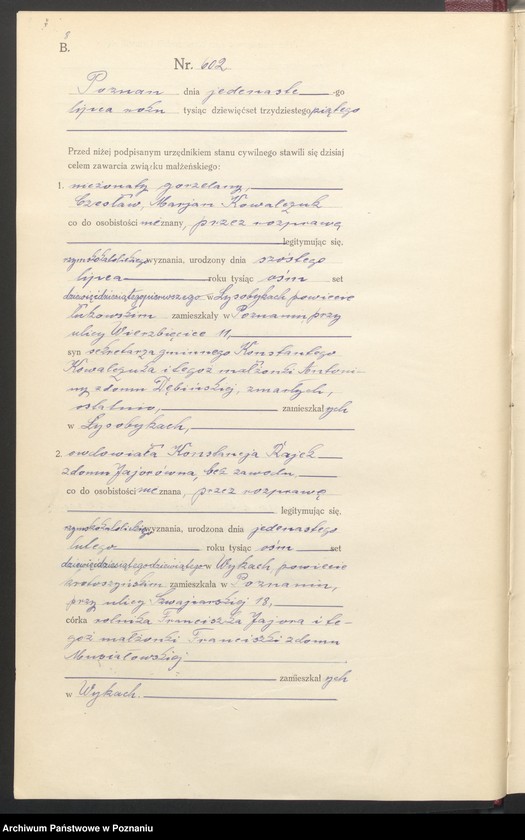 8
B.
Nr. 602
Poznań dnia jedenaste -go
lipca roku tysiąc dziewięćset trzydziestego piątego
Przed niżej podpisanym urzędnikiem stanu cywilnego stawili się dzisiaj
celem zawarcia związku małżeńskiego:
1. nieżonaty gorzelany,
Czesław, Marjan Kowalczuk
co do osobistości nieznany, przez rozprawę
legitymując się,
rzymskokatolickiego wyznania, urodzony dnia szóstego
lipca roku tysiąc ośm set
dziewięćdziesiątego pierwszego w Łysobykach, powiecie
łukowskim zamieszkały w Poznaniu, przy
ulicy Wierzbięcice 11,
syn sekretarza gminnego Konstantego
Kowalczuka i tegoż małżonki Antoni-
ny z domu Dębińskiej, zmarłych,
ostatnio, zamieszkałych
w Łysobykach,
2. owdowiała Konstancja Rajek
z domu Jajorówna, bez zawodu,
co do osobistości nieznana, przez rozprawę
legitymując się,
rzymskokatolickiego wyznania, urodzona dnia jedenastego
lutego roku tysiąc ośm set
dziewięćdziesiątego dziewiątego w Wykach, powiecie
krotoszyńskim zamieszkała w Poznaniu,
przy ulicy Szwajcarskiej 18,
córka rolnika Franciszka Jajora i te-
goż małżonki Franciszki z domu
Musiałowskiej
zamieszkałych
w Wykach.
Archiwum Państwowe w Poznaniu